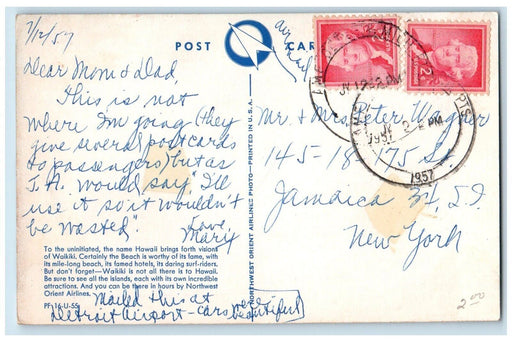 7/12/57
POST CARD
air mail
Dear Mom & Dad,
This is not
where I'm going (they
give several postcards
to passengers) but as
J.A. would say, "I'll
use it so it wouldn't
be wasted".
Love,
Mary
To the uninitiated, the name Hawaii brings forth visions
of Waikiki. Certainly the Beach is worthy of its fame, with
its mile-long beach, its famed hotels, its daring surf-riders.
But don't forget—Waikiki is not all there is to Hawaii.
Be sure to see all the islands, each with its own incredible
attractions. And you can be there in hours by Northwest
Orient Airlines.
PF-16-U-55
Mailed this at
Detroit Airport - cars were
beautiful
NORTHWEST ORIENT AIRLINES PHOTO—PRINTED IN U.S.A.
Mr. & Mrs. Peter Wagner
145-18-175 St.
Jamaica 34, L.I.
New York
1957
2¢
2.00